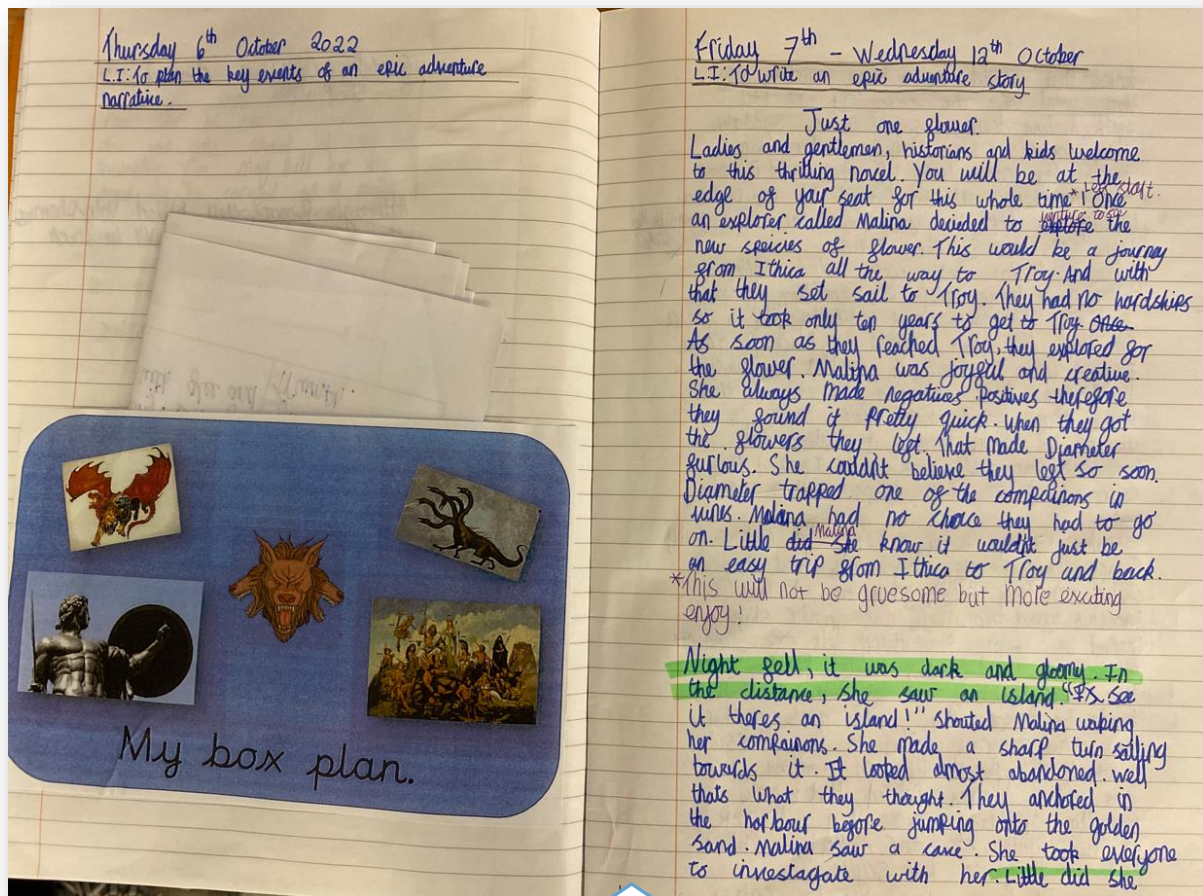 Thursday 6th October 2022
L.I: To plan the key events of an epic adventure
narrative.
My box plan.
Friday 7th - Wednesday 12th October
L.I: To write an epic adventure story
Just one flower.
Ladies and gentlemen, historians and kids welcome
to this thrilling novel. You will be at the
edge of your seat for this whole time*! Lets start. Once
an explorer called Malina decieded to explore venture to see the
new speicies of flower. This would be a journey
from Ithica all the way to Troy. And with
that they set sail to Troy. They had no hardships
so it took only ten years to get to Troy. Once
As soon as they reached Troy, they explored for
the flower. Malina was joyful and creative.
She always made negatives positives therefore
they found it pretty quick. When they got
the flowers they left. That made Diameter
furious. She couldn't believe they left so soon.
Diameter trapped one of the compainons in
vines. Malina had no choice they had to go
on. Little did she Malina know it wouldn't just be
an easy trip from Ithica to Troy and back.
*This will not be gruesome but more exciting
enjoy!
Night fell, it was dark and gloomy. In
the distance, she saw an island. "I see
it theres an island!" shouted Malina waking
her compainons. She made a sharp turn sailing
towards it. It looked almost abandoned. well
thats what they thought. They anchored in
the harbour before jumping onto the golden
sand. Malina saw a cave. She took everyone
to investagate with her. Little did she